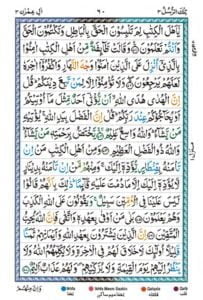 تِلْكَ الرُّسُلُ ٣ ٦٠ اٰلِ عِمْرٰن ٣
يٰٓاَهْلَ الْكِتٰبِ لِمَ تَلْبِسُوْنَ الْحَقَّ بِالْبَاطِلِ وَتَكْتُمُوْنَ الْحَقَّ
وَاَنْتُمْ تَعْلَمُوْنَ وَقَالَتْ طَّآئِفَةٌ مِّنْ اَهْلِ الْكِتٰبِ اٰمِنُوْا
بِالَّذِيْٓ اُنْزِلَ عَلَى الَّذِيْنَ اٰمَنُوْا وَجْهَ النَّهَارِ وَاكْفُرُوْٓا اٰخِرَهٗ
لَعَلَّهُمْ يَرْجِعُوْنَ وَلَا تُؤْمِنُوْٓا اِلَّا لِمَنْ تَبِعَ دِيْنَكُمْ قُلْ
اِنَّ الْهُدٰى هُدَى اللّٰهِ اَنْ يُّؤْتٰٓى اَحَدٌ مِّثْلَ مَآ اُوْتِيْتُمْ اَوْ
يُحَآجُّوْكُمْ عِنْدَ رَبِّكُمْ قُلْ اِنَّ الْفَضْلَ بِيَدِ اللّٰهِ يُؤْتِيْهِ مَنْ
يَّشَآءُ وَاللّٰهُ وَاسِعٌ عَلِيْمٌ يَّخْتَصُّ بِرَحْمَتِهٖ مَنْ يَّشَآءُ
وَاللّٰهُ ذُو الْفَضْلِ الْعَظِيْمِ وَمِنْ اَهْلِ الْكِتٰبِ مَنْ اِنْ تَاْمَنْهُ
بِقِنْطَارٍ يُّؤَدِّهٖٓ اِلَيْكَ وَمِنْهُمْ مَّنْ اِنْ تَاْمَنْهُ بِدِيْنَارٍ
لَّا يُؤَدِّهٖٓ اِلَيْكَ اِلَّا مَا دُمْتَ عَلَيْهِ قَآئِمًا ذٰلِكَ بِاَنَّهُمْ
قَالُوْا لَيْسَ عَلَيْنَا فِي الْاُمِّيّٖنَ سَبِيْلٌ وَيَقُوْلُوْنَ عَلَى اللّٰهِ
الْكَذِبَ وَهُمْ يَعْلَمُوْنَ بَلٰى مَنْ اَوْفٰى بِعَهْدِهٖ وَاتَّقٰى فَاِنَّ
اللّٰهَ يُحِبُّ الْمُتَّقِيْنَ اِنَّ الَّذِيْنَ يَشْتَرُوْنَ بِعَهْدِ اللّٰهِ وَاَيْمَانِهِمْ
ثَمَنًا قَلِيْلًا اُولٰٓئِكَ لَا خَلَاقَ لَهُمْ فِي الْاٰخِرَةِ وَلَا يُكَلِّمُهُمُ اللّٰهُ
وَلَا يَنْظُرُ اِلَيْهِمْ يَوْمَ الْقِيٰمَةِ وَلَا يُزَكِّيْهِمْ وَلَهُمْ عَذَابٌ اَلِيْمٌ
وَاِنَّ مِنْهُمْ